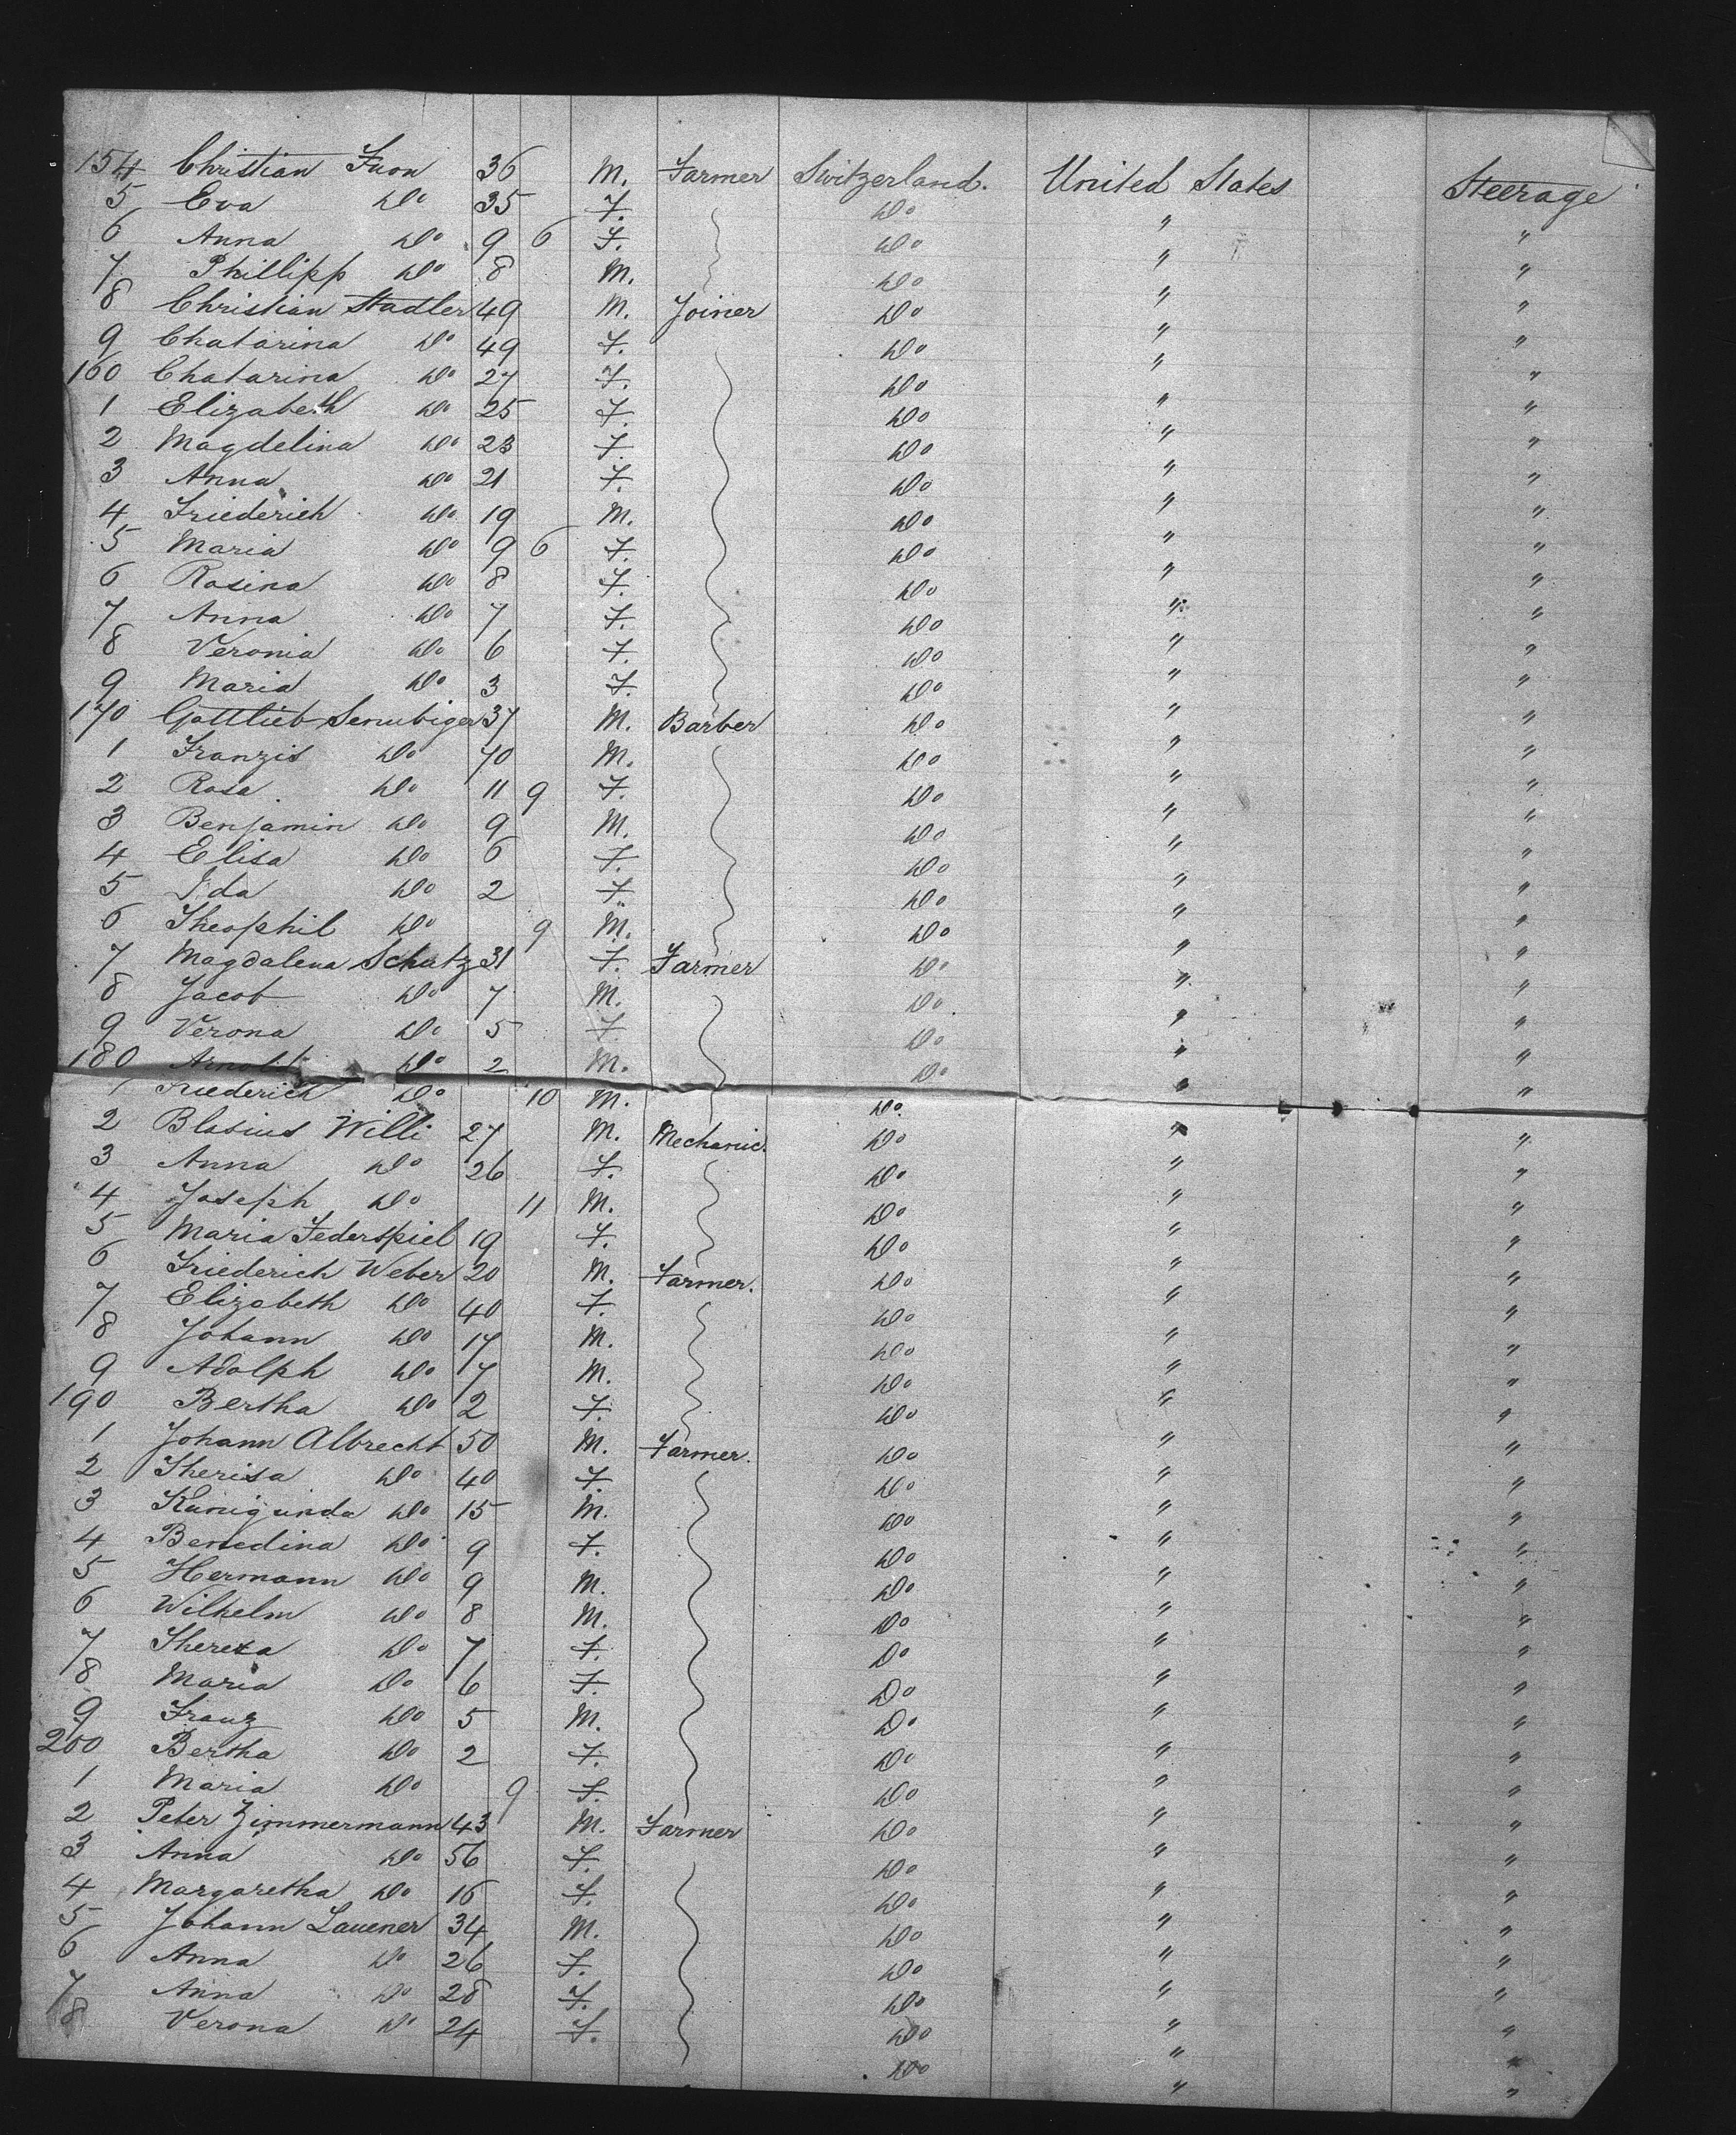 154 Christian Fuon 36 M. Farmer Switzerland. United States Steerage
5 Eva Do 35 F. Do " "
6 Anna Do 9 6 F. Do " "
7 Phillipp Do 8 M. Do " "
8 Christian Stadler 49 M. Joiner Do " "
9 Chatarina Do 49 F. Do " "
160 Chatarina Do 27 F. Do " "
1 Elizabeth Do 25 F. Do " "
2 Magdelina Do 23 F. Do " "
3 Anna Do 21 F. Do " "
4 Friederich Do 19 M. Do " "
5 Maria Do 9 6 F. Do " "
6 Rosina Do 8 F. Do " "
7 Anna Do 7 F. Do " "
8 Veronia Do 6 F. Do " "
9 Maria Do 3 F. Do " "
170 Gottlieb Senubiger 37 M. Barber Do " "
1 Franzis Do 40 M. Do " "
2 Rosa Do 11 9 F. Do " "
3 Benjamin Do 9 M. Do " "
4 Elisa Do 6 F. Do " "
5 Ida Do 2 F. Do " "
6 Theophil Do 9 M. Do " "
7 Magdalena Schatz 31 F. Farmer Do " "
8 Jacob Do 7 M. Do " "
9 Verona Do 5 F. Do " "
180 Arnold Do 2 M. Do " "
1 Friederich Do 10 M. Do " "
2 Blasius Willi 27 M. Mechanic. Do " "
3 Anna Do 26 F. Do " "
4 Joseph Do 11 M. Do " "
5 Maria Federspiel 19 F. Do " "
6 Friederich Weber 20 M. Farmer. Do " "
7 Elizabeth Do 40 F. Do " "
8 Johann Do 17 M. Do " "
9 Adolph Do 7 M. Do " "
190 Bertha Do 2 F. Do " "
1 Johann Albrecht 50 M. Farmer. Do " "
2 Therisa Do 40 F. Do " "
3 Kunigunda Do 15 M. Do " "
4 Benedina Do 9 F. Do " "
5 Hermann Do 9 M. Do " "
6 Wilhelm Do 8 M. Do " "
7 Theresa Do 7 F. Do " "
8 Maria Do 6 F. Do " "
9 Franz Do 5 M. Do " "
200 Bertha Do 2 F. Do " "
1 Maria Do 9 F. Do " "
2 Peter Zimmermann 43 M. Farmer Do " "
3 Anna Do 56 F. Do " "
4 Margaretha Do 16 F. Do " "
5 Johann Lauener 34 M. Do " "
6 Anna Do 26 F. Do " "
7 Anna Do 28 F. Do " "
8 Verona Do 24 F. Do " "